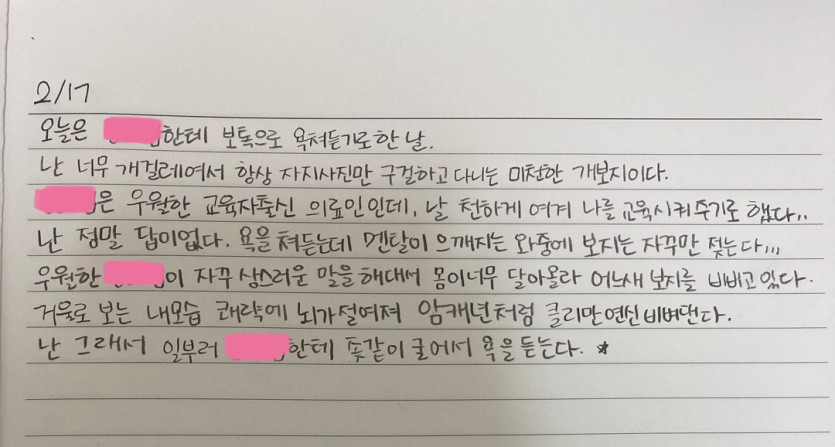 2/17
오늘은 한테 보톡으로 욕쳐듣기로한 날.
난 너무 개걸레여서 항상 자지사진만 구걸하고 다니는 미천한 개보지이다.
은 우월한 교육자출신 의료인인데, 날 천하게 여겨 나를 교육시켜주기로 했다..
난 정말 답이없다. 욕을 쳐듣는데 멘탈이 으깨지는 와중에 보지는 자꾸만 젖는다,,,
우월한 이 자꾸 상스러운 말을 해대서 몸이너무 달아올라 어느새 보지를 비비고 있다.
거울로 보는 내모습 쾌락에 뇌가절여져 암캐년처럼 클리만연신비벼댄다.
난 그래서 일부러 한테 좆같이 굴어서 욕을 듣는다. ★